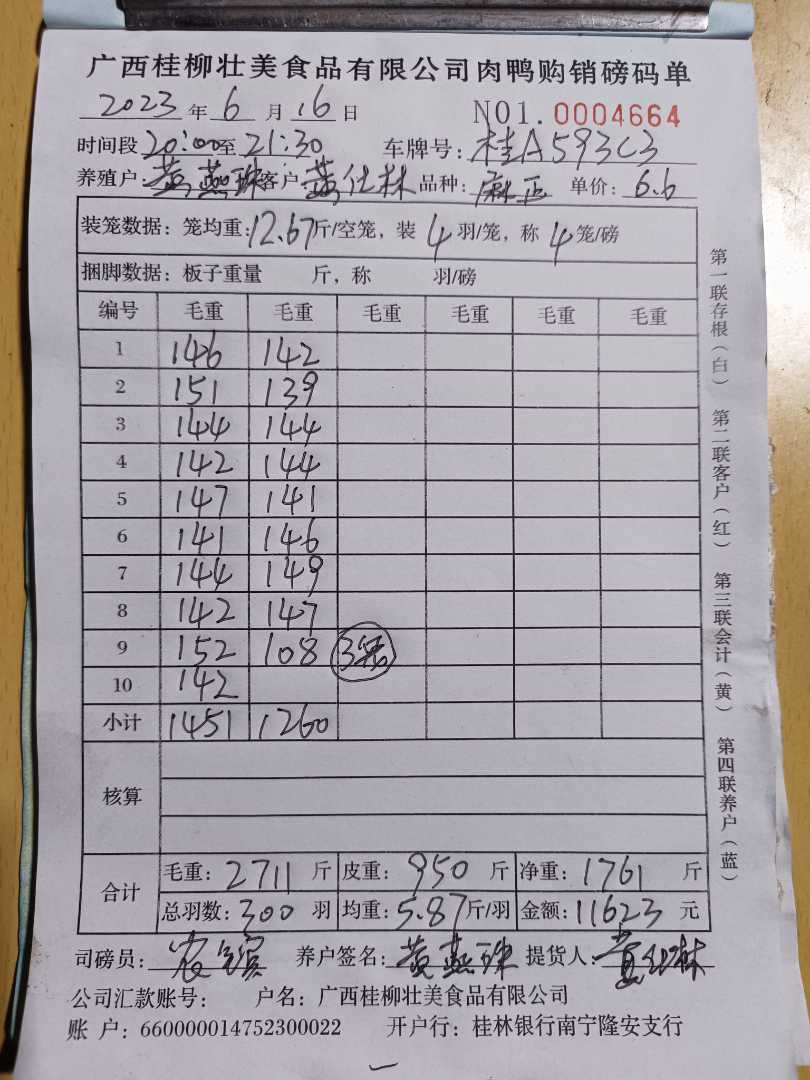 广西桂柳壮美食品有限公司肉鸭购销磅码单
2023 年 6 月 16 日 NO1. 0004664
时间段 20:00 至 21:30 车牌号: 桂A593C3
养殖户: 黄燕珠 客户: 黄仕林 品种: 麻正 单价: 6.6
装笼数据: 笼均重: 12.67 斤/空笼, 装 4 羽/笼, 称 4 笼/磅
捆脚数据: 板子重量 斤, 称 羽/磅
编号 毛重 毛重 毛重 毛重 毛重 毛重
1 146 142
2 151 139
3 144 144
4 142 144
5 147 141
6 141 146
7 144 149
8 142 147
9 152 108 3笼
10 142
小计 1451 1260
核算
合计 毛重: 2711 斤 皮重: 950 斤 净重: 1761 斤
总羽数: 300 羽 均重: 5.87 斤/羽 金额: 11623 元
司磅员: 养户签名: 黄燕珠 提货人: 黄仕林
公司汇款账号: 户名: 广西桂柳壮美食品有限公司
账 户: 660000014752300022 开户行: 桂林银行南宁隆安支行
第一联存根(白) 第二联客户(红) 第三联会计(黄) 第四联养户(蓝)